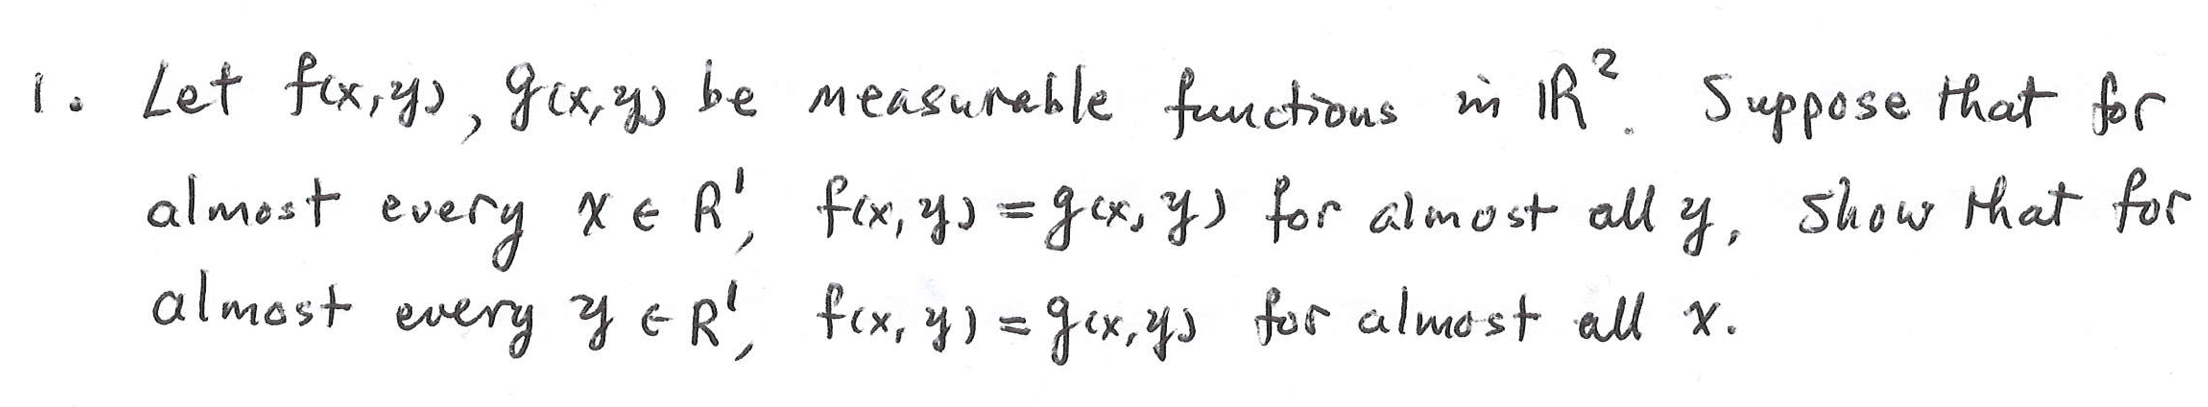 1. Let f(x,y), g(x,y) be measurable functions in ℝ². Suppose that for
almost every x ∈ R¹, f(x,y) = g(x,y) for almost all y, show that for
almost every y ∈ R¹, f(x,y) = g(x,y) for almost all x.